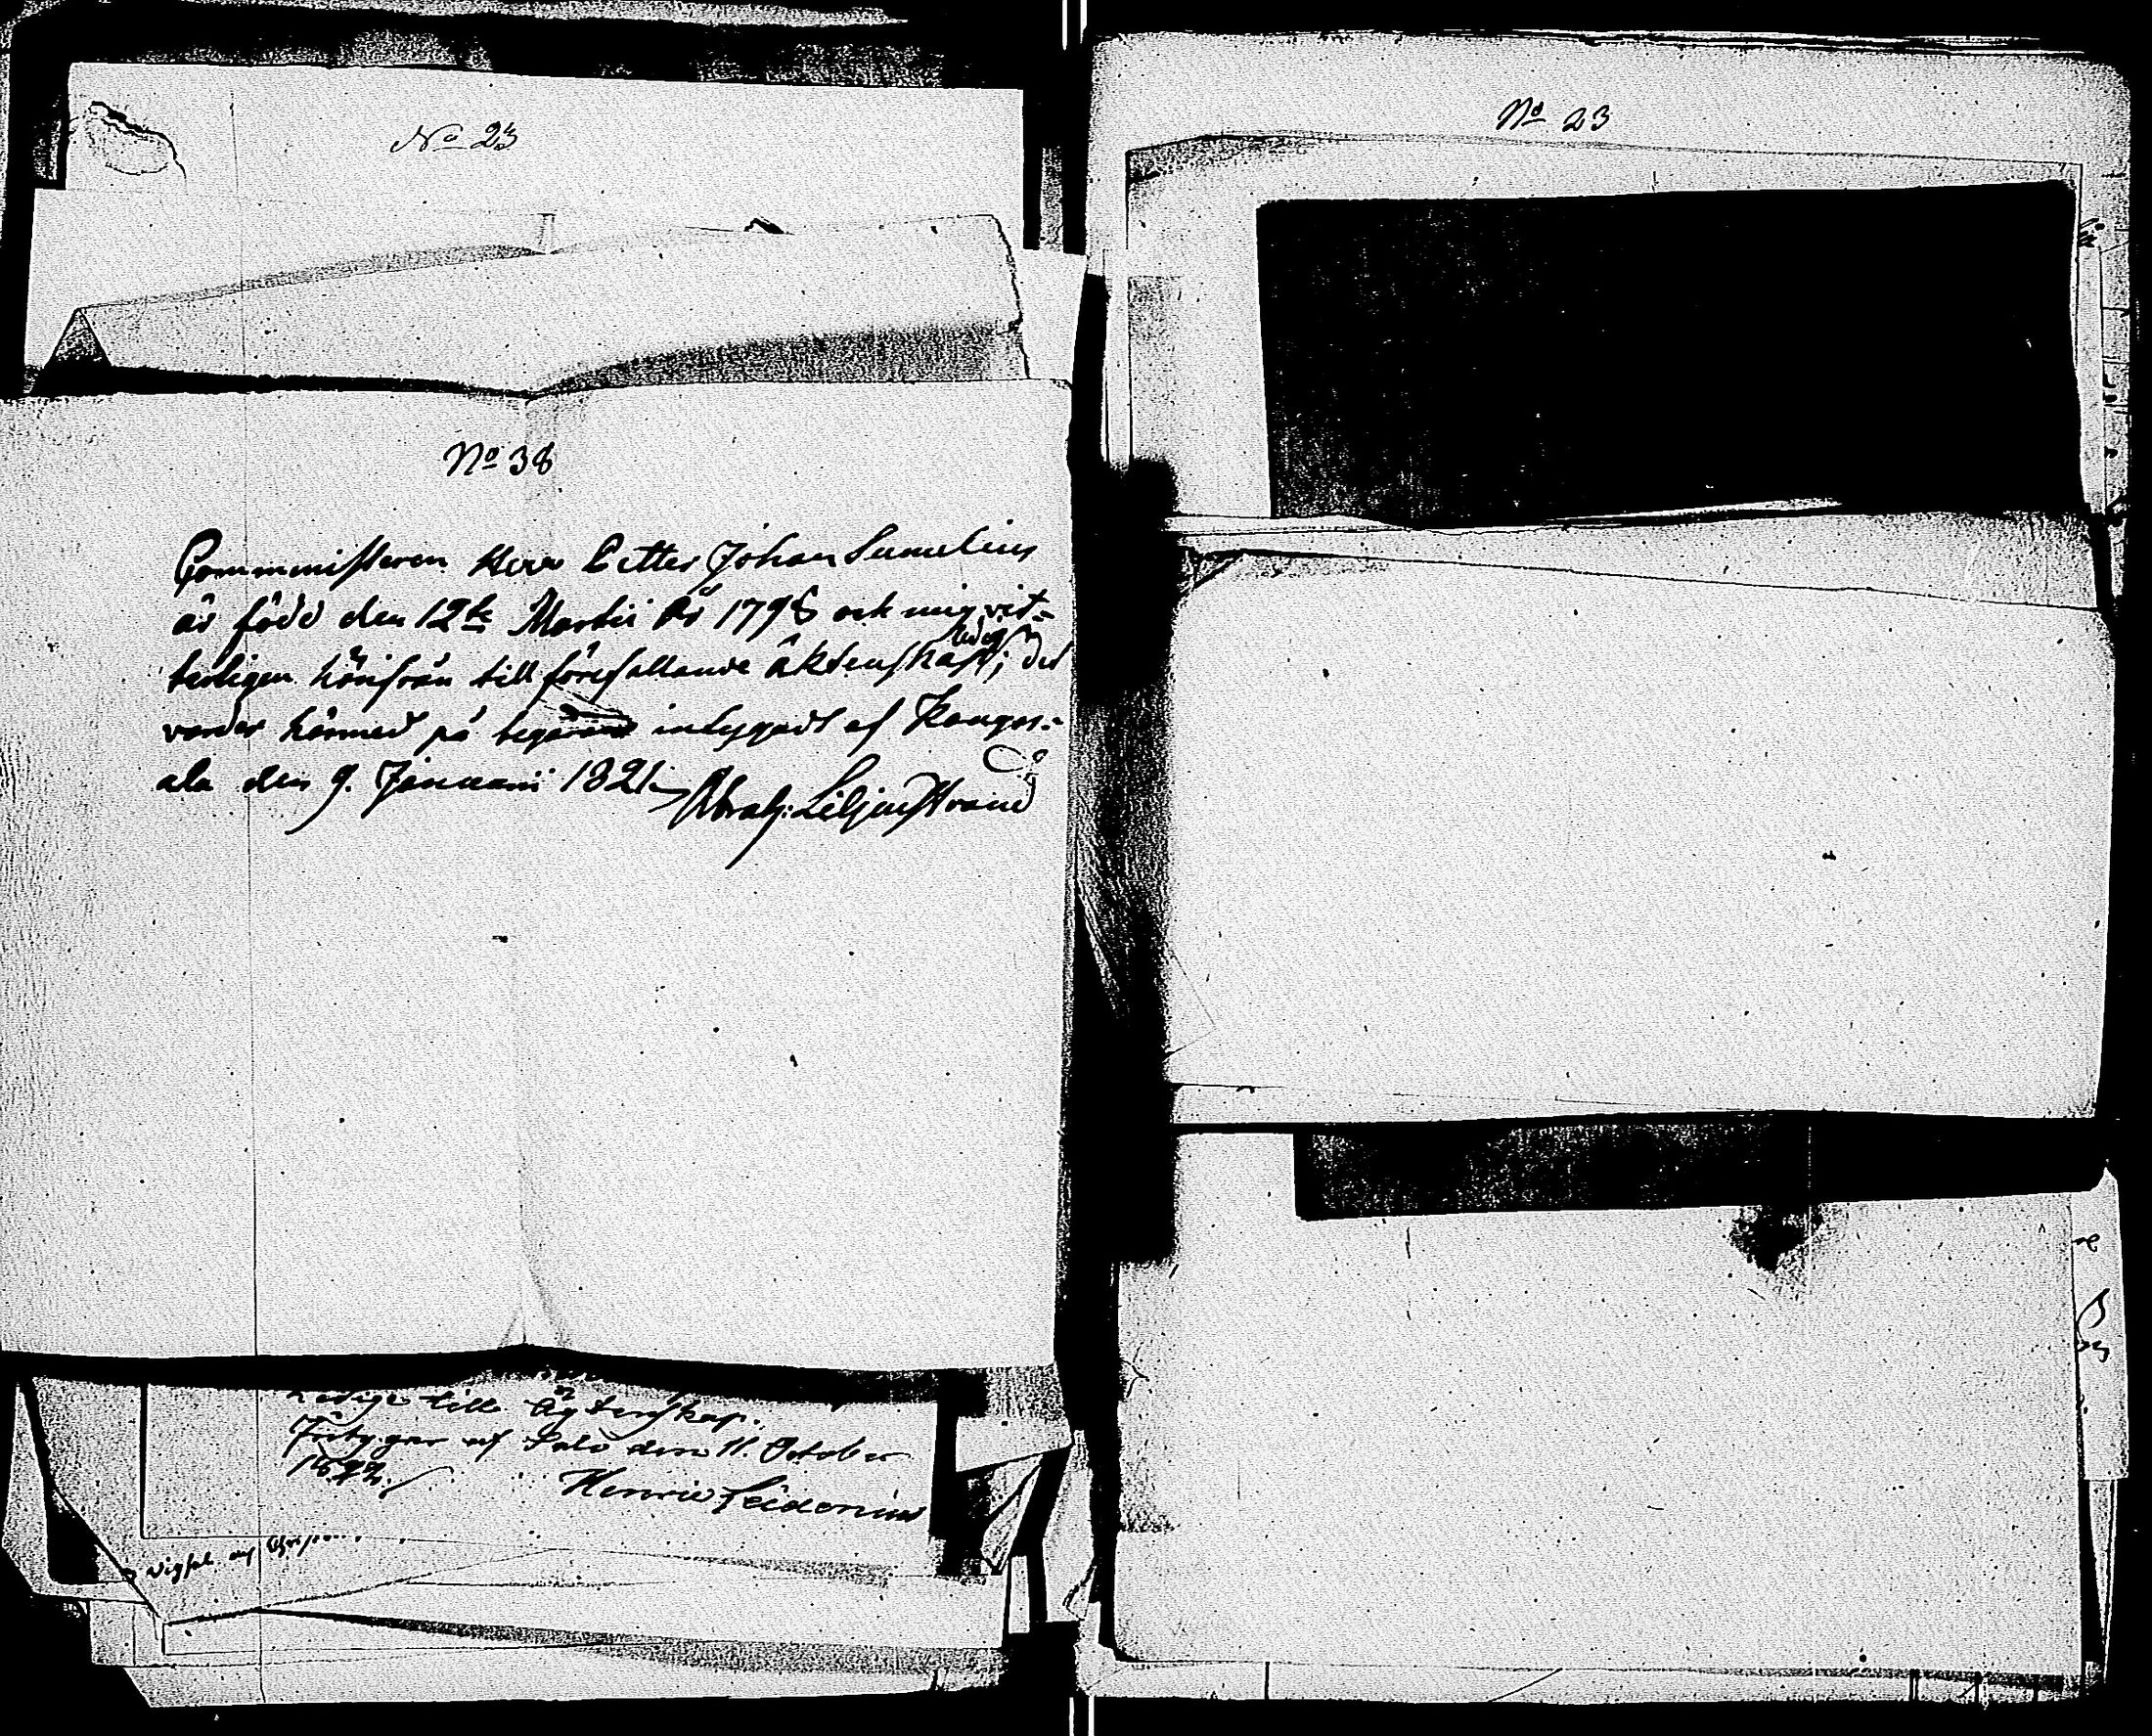 No 23
No 38
Commministeren Herr Petter Johan Sumelius
är född den 12te Martii År 1798 och mig vit-
terligen härifrån till förefallande äktenskap ledig; det
varder härmed på begäran intygadt af Kangas-
ala den 9. Januarii 1821.
Abrah: Liljenstrand
Ledige till Ägtenskap.
Förtygar af Salo den 11. October
1822.
Henric Leidenius
No 23